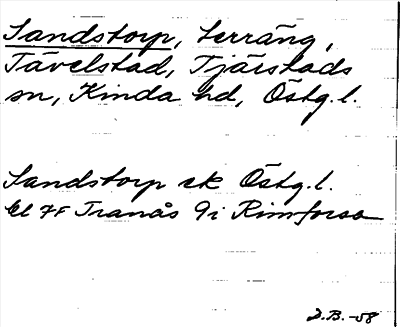 Sandstorp, terräng,
Tävelstad, Tjärstads
sn, Kinda hd, Östg. l.
Sandstorp ek Östg. l.
bl 7F Tranås 9i Rimforsa
D.B. -58